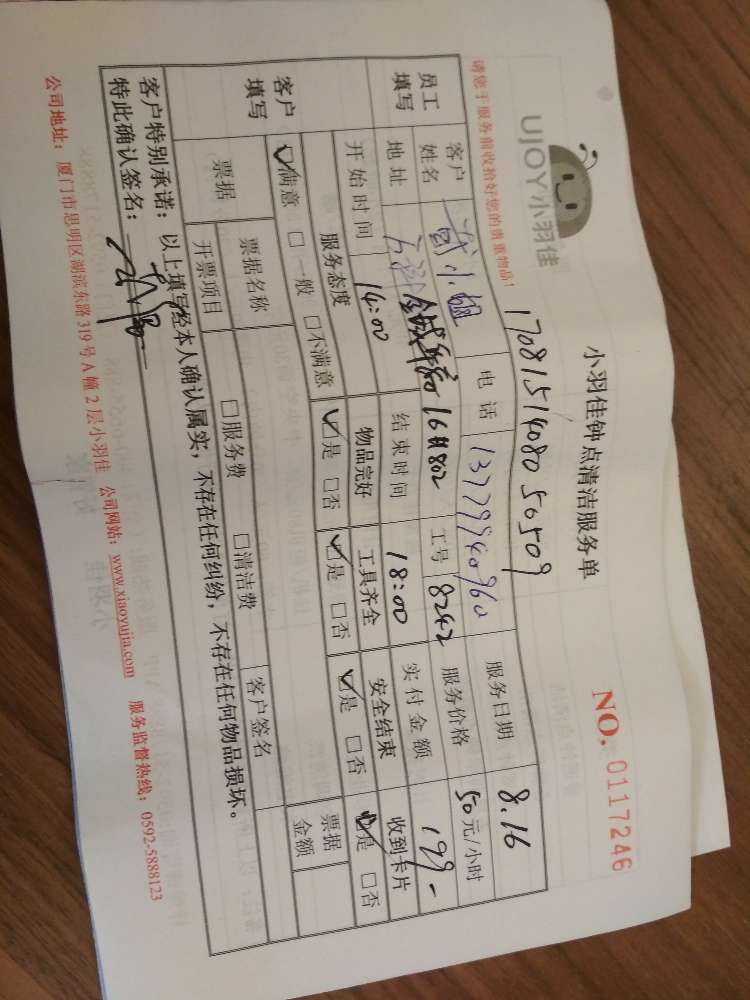 UJOY小羽佳
小羽佳钟点清洁服务单
NO. 0117246
请您于服务前收拾好您的贵重物品!
1708151408050509
员工填写
客户姓名 小姐 电话 13779940960 服务日期 8.16
地址 16#802 工号 8242 服务价格 50元/小时
开始时间 14:00 结束时间 18:00 实付金额 199-
客户填写
服务态度 物品完好 工具齐全 安全结束 收到卡片
☑满意 □一般 □不满意 ☑是 □否 ☑是 □否 ☑是 □否 ☑是 □否
票据 票据名称 客户签名 票据金额
开票项目 □服务费 □清洁费
客户特别承诺:以上填写经本人确认属实,不存在任何纠纷,不存在任何物品损坏。
特此确认签名:
公司地址:厦门市思明区湖滨东路319号A幢2层小羽佳 公司网站:www.xiaoyujia.com 服务监督热线:0592-5888123